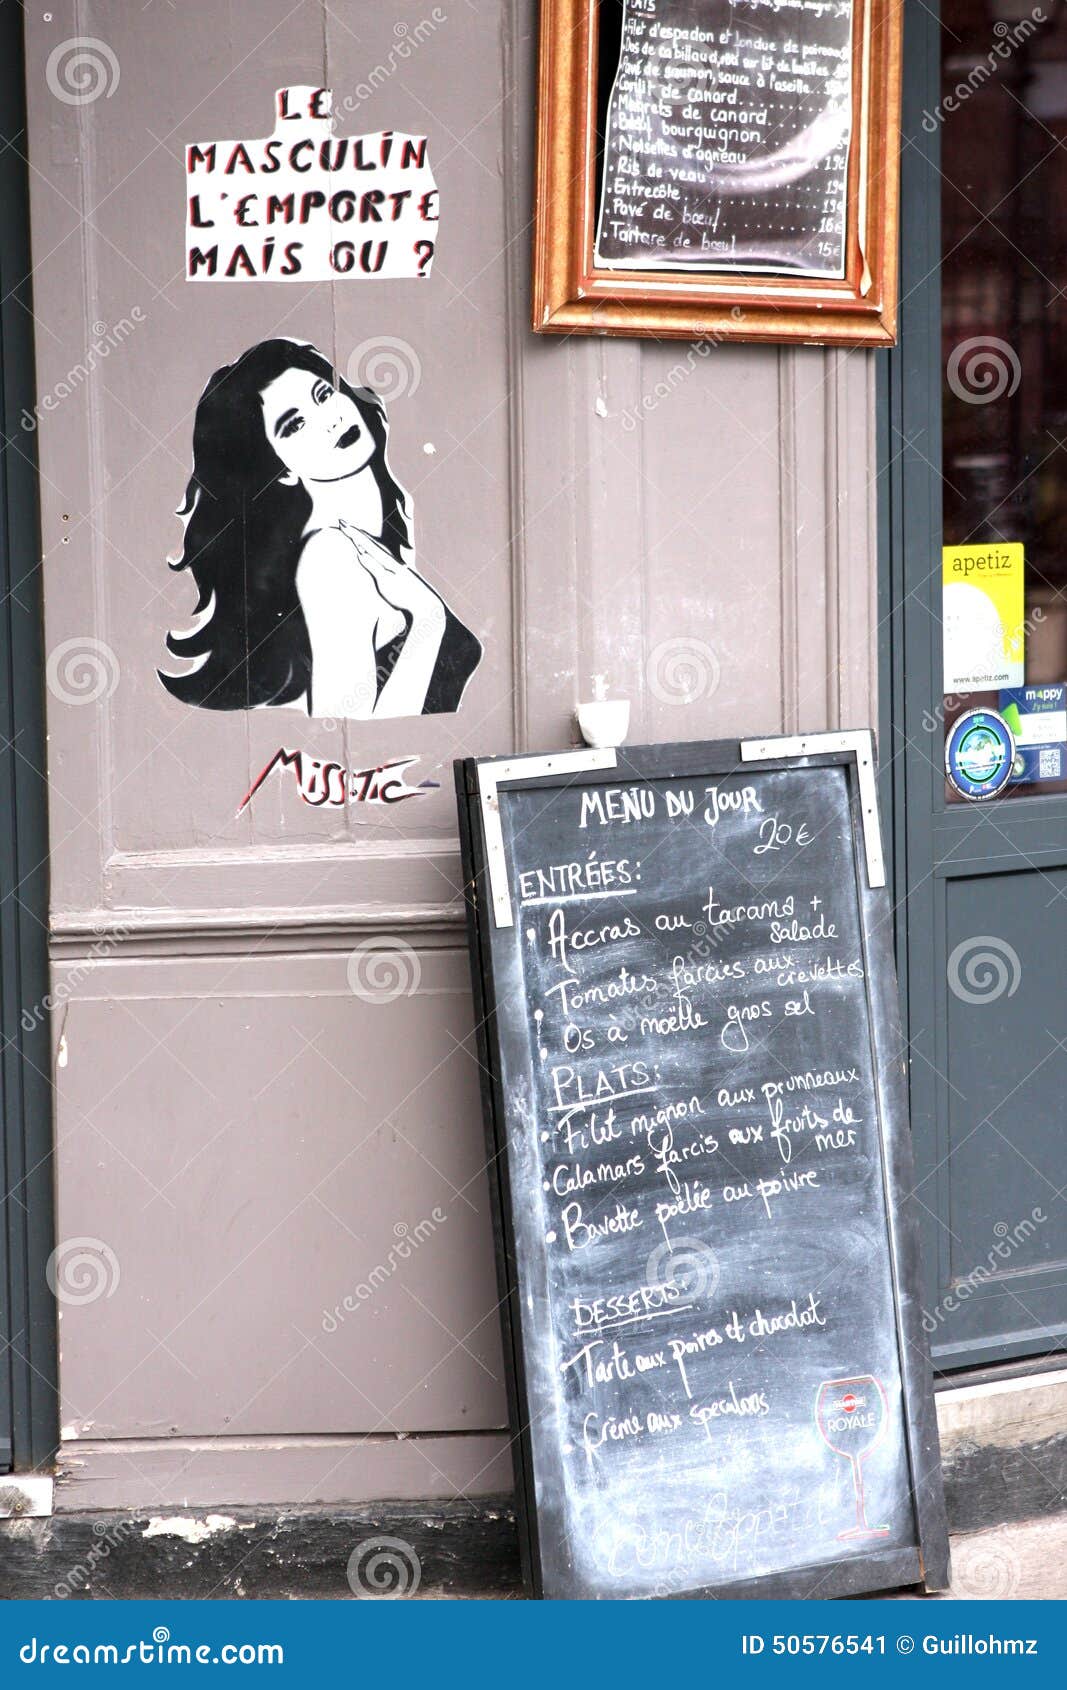 LE
MASCULIN
L'EMPORTE
MAIS OU ?
MISS.TIC
Filet d'espadon et fondue de poireaux
Pavé de saumon, sauce à l'oseille
Confit de canard
Magrets de canard
Bœuf bourguignon
Noisettes d'agneau 19€
Ris de veau 19€
Entrecôte 19€
Pavé de bœuf 16€
Tartare de bœuf 15€
apetiz
www.apetiz.com
mappy
MENU DU JOUR
20€
ENTRÉES:
Accras au tarama +
salade
Tomates farcies aux
crevettes
Os à moëlle gros sel
PLATS:
Filet mignon aux prunneaux
Calamars farcis aux fruits de
mer
Bavette poëlée au poivre
DESSERTS:
Tarte aux poires et chocolat
Crème aux speculoos
ROYALE
dreamstime.com
ID 50576541 © Guillohmz